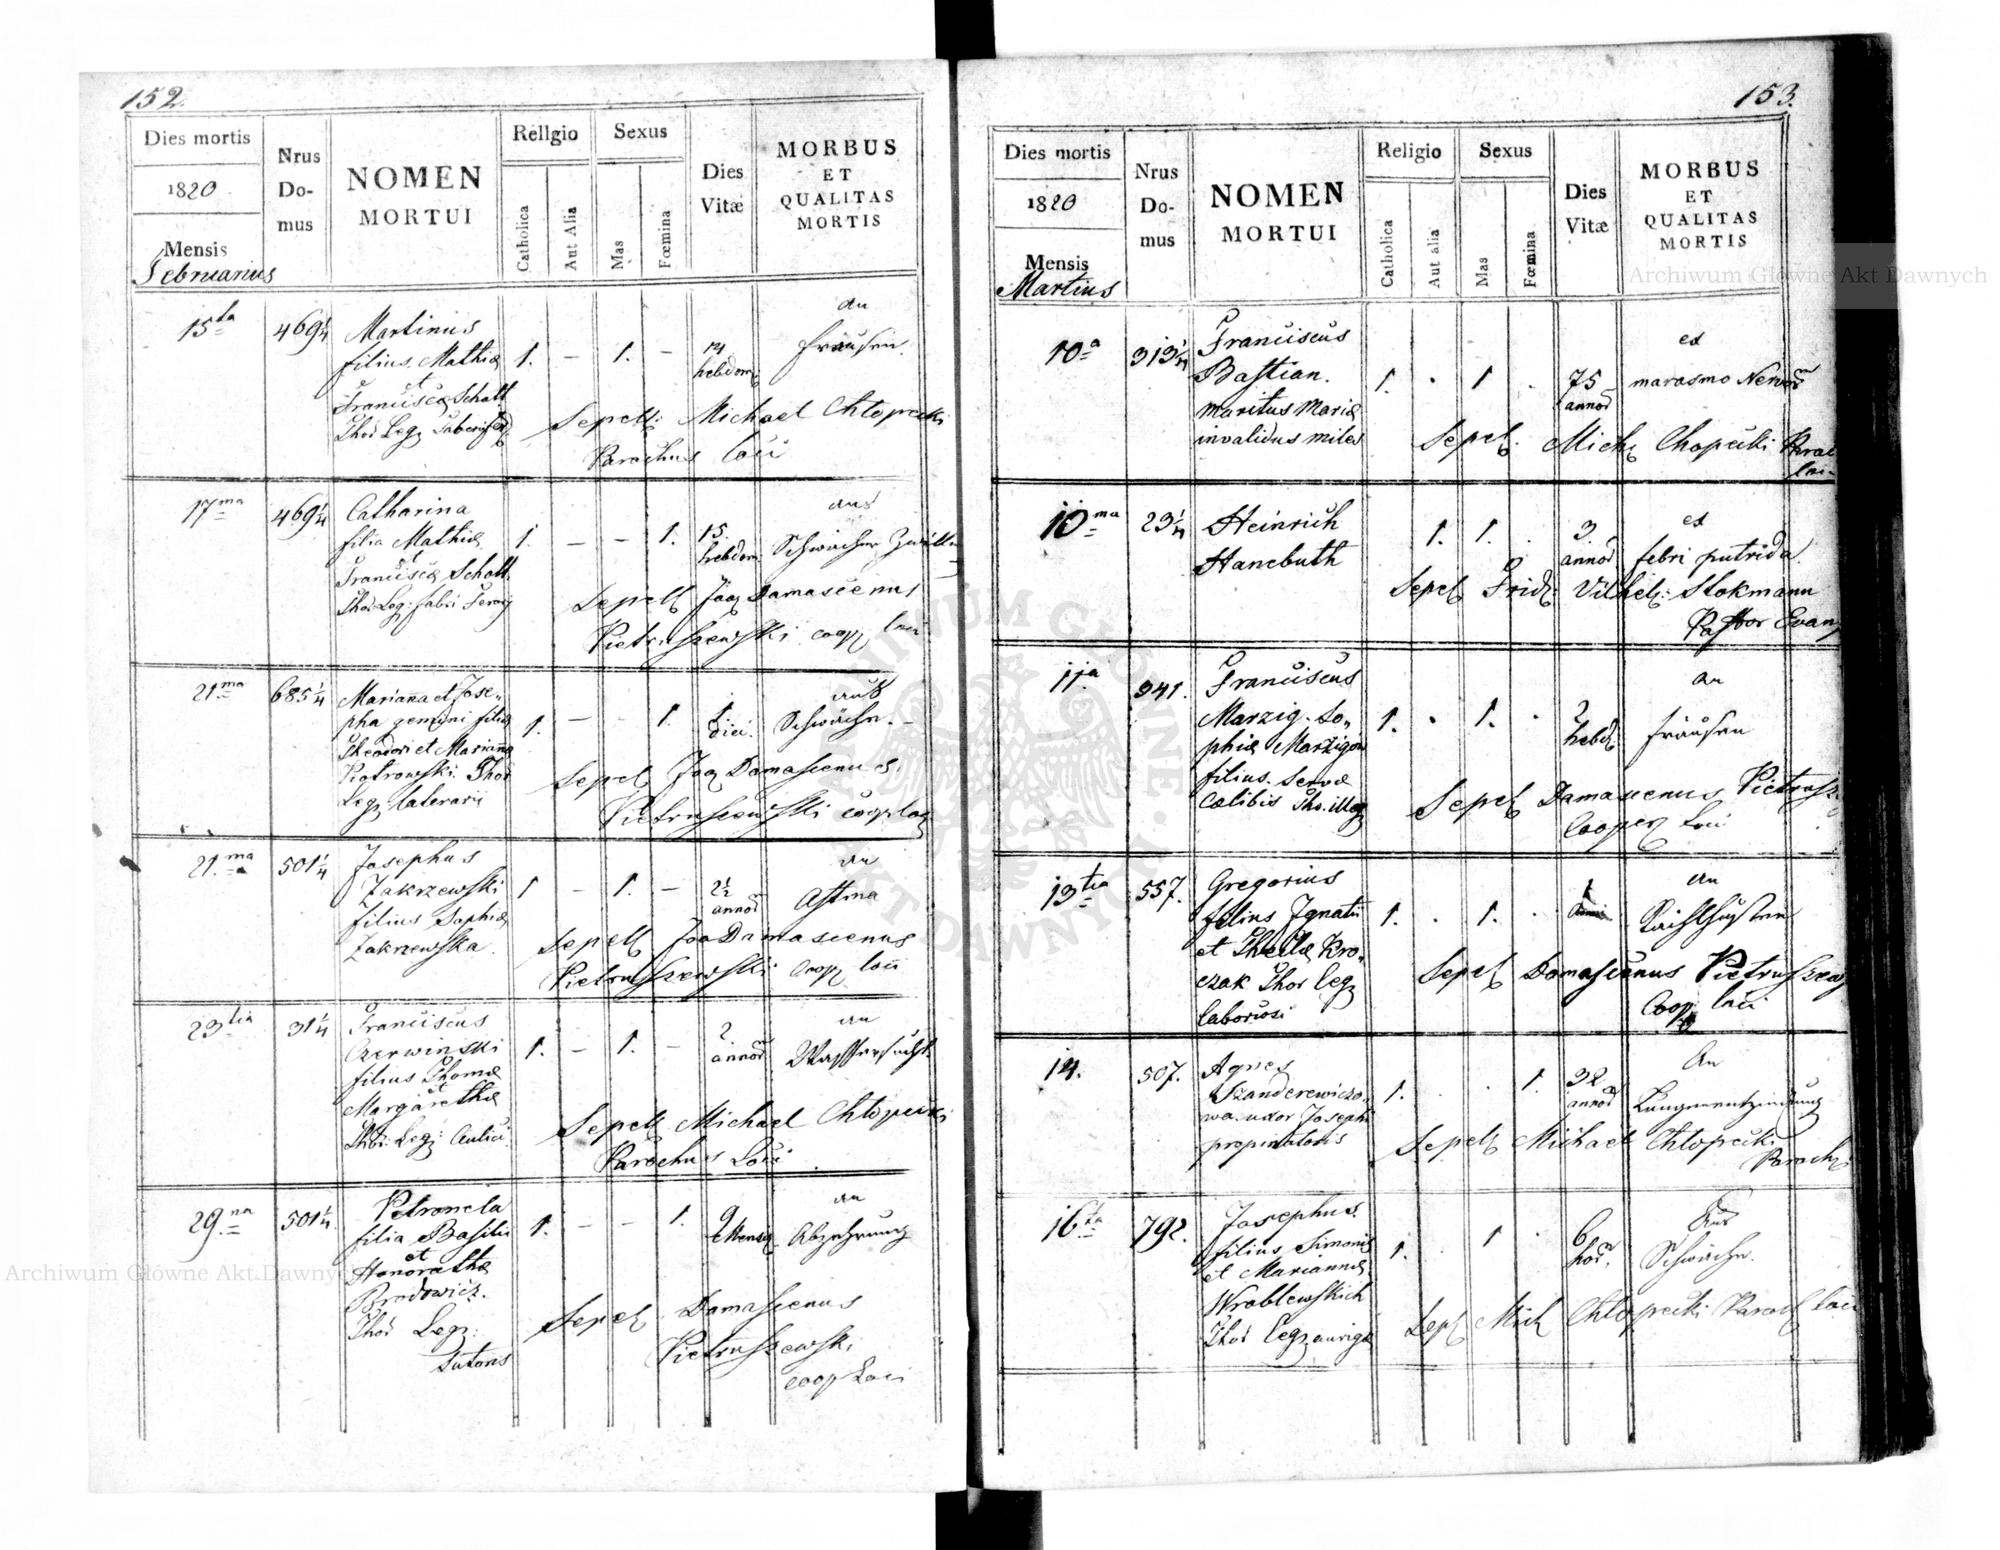 152.
Dies mortis
1820
Mensis
Februarius
Nrus
Do-
mus
NOMEN
MORTUI
Religio
Catholica
Aut Alia
Sexus
Mas
Fœmina
Dies
Vitæ
MORBUS
ET
QUALITAS
MORTIS
15ta 469¼ Martinus
filius Mathiæ
et
Franciscæ Schatt
Thori Leg
1. – 1. – 14
hebdom
an
fräusen.
Sepell: Michael Chłopecki
Parochus loci
17ma 469¼ Catharina
filia Mathiæ
et
Franciscæ Schatt
Thor. Leg: fabri
1. – – 1. 15.
hebdom
aus
Schwäche
Sepell Joa Damascenus
Pietruszewski coop loci
21ma 685¼ Marianna et Jose-
pha gemini filiæ
Theodori et Marianna
Piotrowski Thor
Leg laterarii
1. – – 1. 1
diei.
aus
Schwäche. –
Sepel Joa Damascenus
Pietruszewski coop loci
21.ma 501¼ Josephus
Zakrzewski
filius Sophiæ
Zakrzewska.
1 – 1. – 2½
annor
an
Astma
Sepell Joa Damascenus
Pietruszewski Coop loci
23tia 31¼ Franciscus
Czerwinski
filius Thomæ
et
Margarethæ
Thor: Leg:
1. – 1. – 2
annor
an
Wassersucht
Sepell Michael Chłopecki
Parochus Loci
29.na 501¼. Petronela
filia Basilii
et
Honorathæ
Brodowicz.
Thor Leg:
Sutoris
1. – – 1. 9
Mensi
an
Abzehrung
Sepel Damascenus
Pietruszewski
coop Loci
153.
Dies mortis
1820
Mensis
Martius
Nrus
Do-
mus
NOMEN
MORTUI
Religio
Catholica
Aut alia
Sexus
Mas
Fœmina
Dies
Vitæ
MORBUS
ET
QUALITAS
MORTIS
10a 313¼ Franciscus
Bastian.
maritus Mariæ
invalidus miles
1. . 1 . 75
annor
ex
marasmo
Sepel. Mich Chopecki
loci
10ma 23¼ Heinrich
Hanebuth
1. 1. . 3
annor
ex
febri putrida.
Sepel Frid: Vilhel: Stokmann
Pastor Evan
11a. 341. Franciscus
Marzig. So-
phiæ Marzigon
filius. Servæ
Cælibis Tho. illeg
1. . 1. . 2
hebd
an
fräusen
Sepel Damascenus Pietrusz
Cooper Loci
13tia 557. Gregorius
filius Ignatii
et Theclæ Kro-
czak Thor Leg
laboriosi
1. . 1. . 1
an
Sepel Damascenus Pietruszew
Coop loci
14. 507. Agnes
Szanderewiczo-
wa. uxor Josephi
propinatoris
1. . . 1. 32
annor
An
Lungenentzündung
Sepel Michael Chłopecki
Paroch
16ta 792. Josephus.
filius Simonis
et Mariannæ
Wroblewskich
Thor Leg aurigæ
1. . 1 . 6
hor.
Aus
Schwäche.
Sep Mich Chłopecki Paroch Loci
Archiwum Główne Akt Dawnych
Archiwum Główne Akt Dawnych
ARCHIWUM GŁÓWNE AKT DAWNYCH